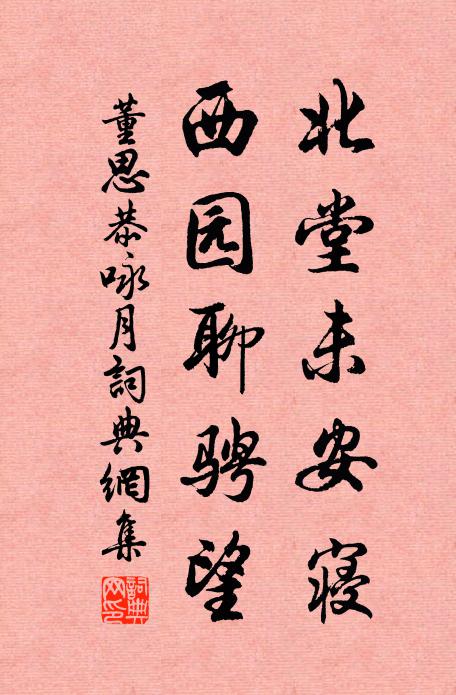 北堂未安寝
西园聊骋望
董思恭咏月詞典網集
詞典网印